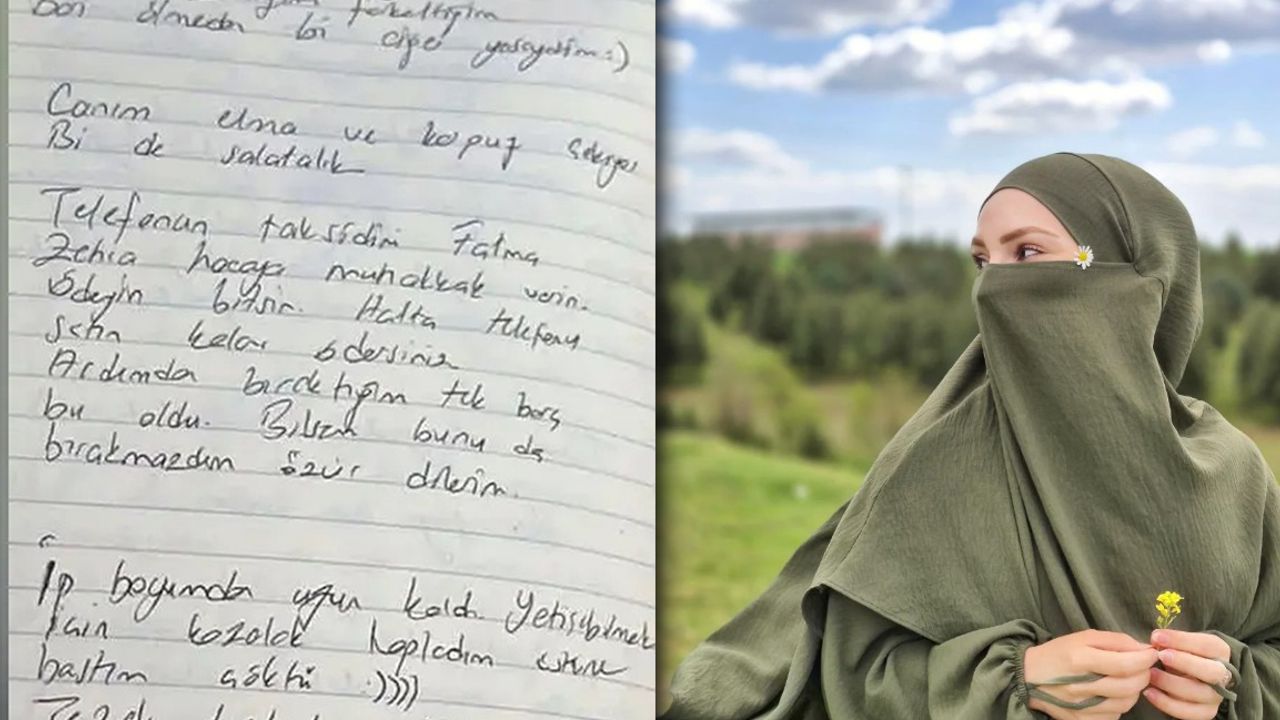 ben ölmeden bi cipe yasıyodım :)
Canım elma ve kopuz
Bi de salatalık
Telefonun taksidini Fatma
Zehra hocaya muhakkak verin.
Ödeyin bitsin. Hatta telefonu
satın kalanı ödersiniz
Ardımda bıraktığım tek borç
bu oldu. Bilsem bunu da
bırakmazdım özür dilerim.
İp boyumdan uzun kaldı Yetişebilmek
için kozalak topladım üstüne
bastım çöktü :))))